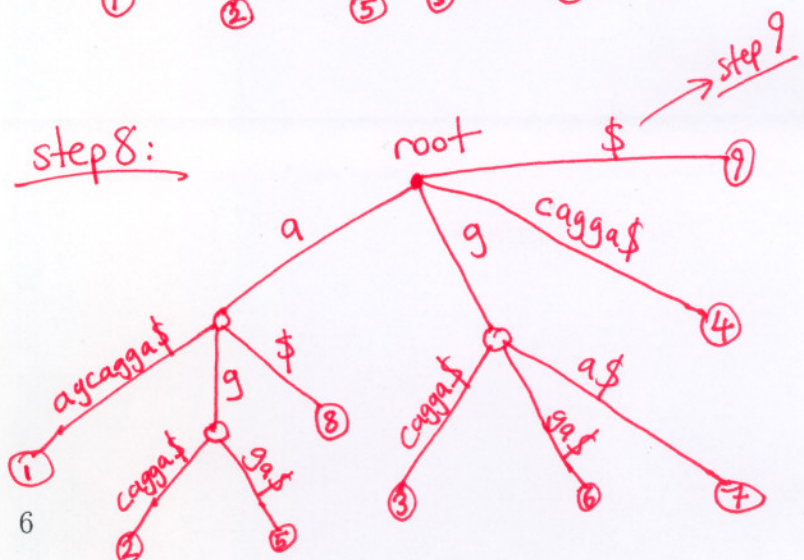 ① ② ⑤
step 9
step 8: root $ ⑨
a g cagga$
④
agcagga$ g $ cagga$ ga$ a$
⑧
① cagga$ ga$ ③ ⑥ ⑦
6 ② ⑤